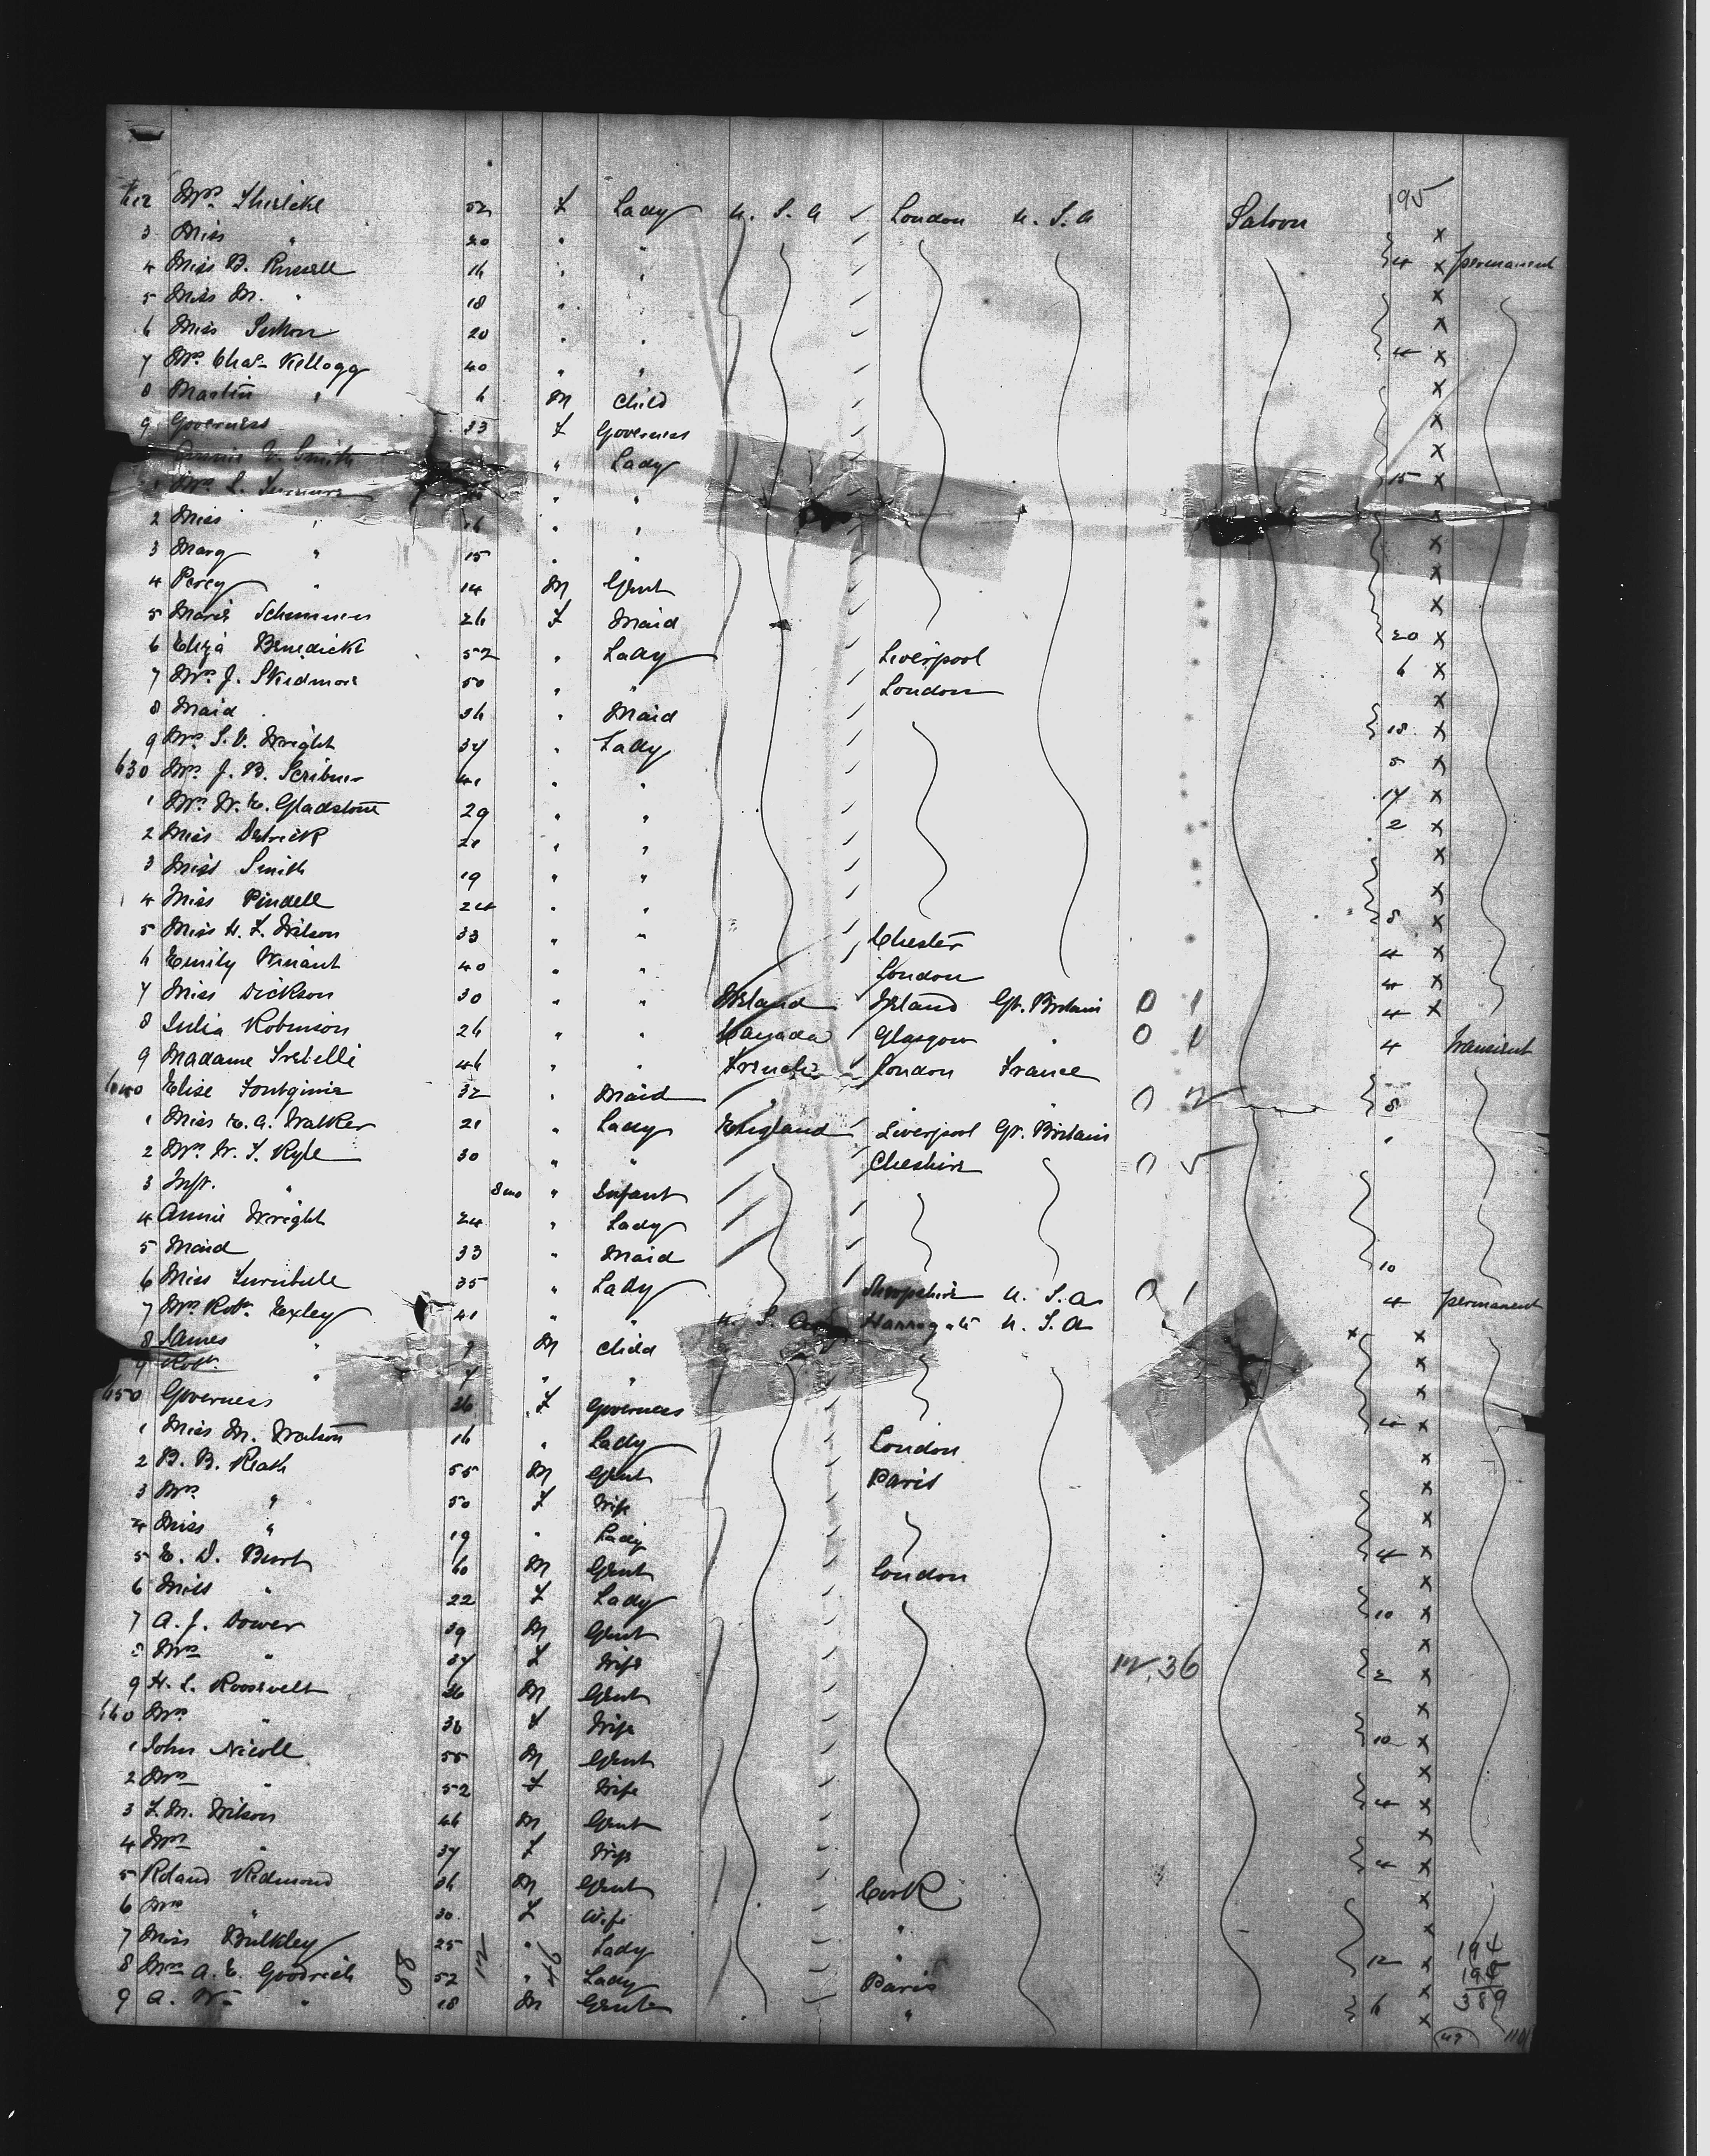 195
612 Mrs. Thirlekel 52 F Lady U. S. A London U. S. A Saloon
3 Miss " 20 " " x
4 Miss B. Russell 16 " " 4 x permanent
5 Miss M. " 18 " " x
6 Miss 20 " " x
7 Mrs. Chas. Kellogg 40 " " 4 x
8 Martin " 6 M Child x
9 Governess 33 F Governess x
Annie V. Smith " Lady x
1 Mrs. L. " " 15 x
2 Miss " 16 " "
3 Mary " 15 " " x
4 Percy " 14 M Gent x
5 Marie 26 F Maid x
6 Eliza Benedickt 52 " Lady Liverpool 20 x
7 Mrs. J. Skidmore 50 " " London 6 x
8 Maid 36 " Maid x
9 Mrs. S. V. Wright 37 " Lady 18 x
630 Mrs. J. B. Scribner 41 " " 5 x
1 Mrs. W. E. Gladstone 29 " " 17 x
2 Miss Detrick 21 " " 2 x
3 Miss Smith 19 " " x
4 Miss Pindell 24 " " x
5 Miss H. F. Wilson 33 " " Chester 8 x
6 Emily Winant 40 " " London 4 x
7 Miss Dickson 30 " " Ireland Ireland Gt. Britain 0 1 4 x
8 Julia Robinson 26 " " Canada Glasgow " 0 1 4 x
9 Madame Trebelli 46 " " French London France 4 transient
640 Elise 32 " Maid " " 0 2
1 Miss E. A. Walker 21 " Lady England Liverpool Gt. Britain 8
2 Mrs. W. T. Kyle 30 " " Cheshire 0 5 1
3 Inft. " 8 mo " Infant
4 Annie Wright 24 " Lady
5 Maid 33 " Maid
6 Miss Turnbull 35 " Lady Shropshire U. S. A 0 1 10
7 Mrs. Robt. Exley 41 " " U. S. A Harrogate U. S. A 4 permanent
8 James " 9 M Child x x
9 Robt. " 7 " " x
650 Governess 36 F Governess x
1 Miss M. Watson 16 " Lady London x
2 B. B. Reath 55 M Gent Paris x
3 Mrs. " 50 F Wife x
4 Miss " 19 " Lady x
5 E. D. Burt 60 M Gent London 4 x
6 Miss " 22 F Lady x
7 A. J. Dower 39 M Gent 10 x
8 Mrs " 37 F Wife 12, 36 x
9 H. L. Roosevelt 36 M Gent 2 x
660 Mrs. " 36 F Wife x
1 John Nicoll 55 M Gent 10 x
2 Mrs " 52 F Wife x
3 F. M. Wilson 46 M Gent 4 x
4 Mrs " 37 F Wife x
5 Roland Redmond 36 M Gent Cork 4 x
6 Mrs " 30 F Wife " x
7 Miss Bulkley 25 " Lady " x
8 Mrs A. E. Goodrich 52 " Lady Paris 12 x
9 A. W. " 18 M Gent " 6 x
194
195
389